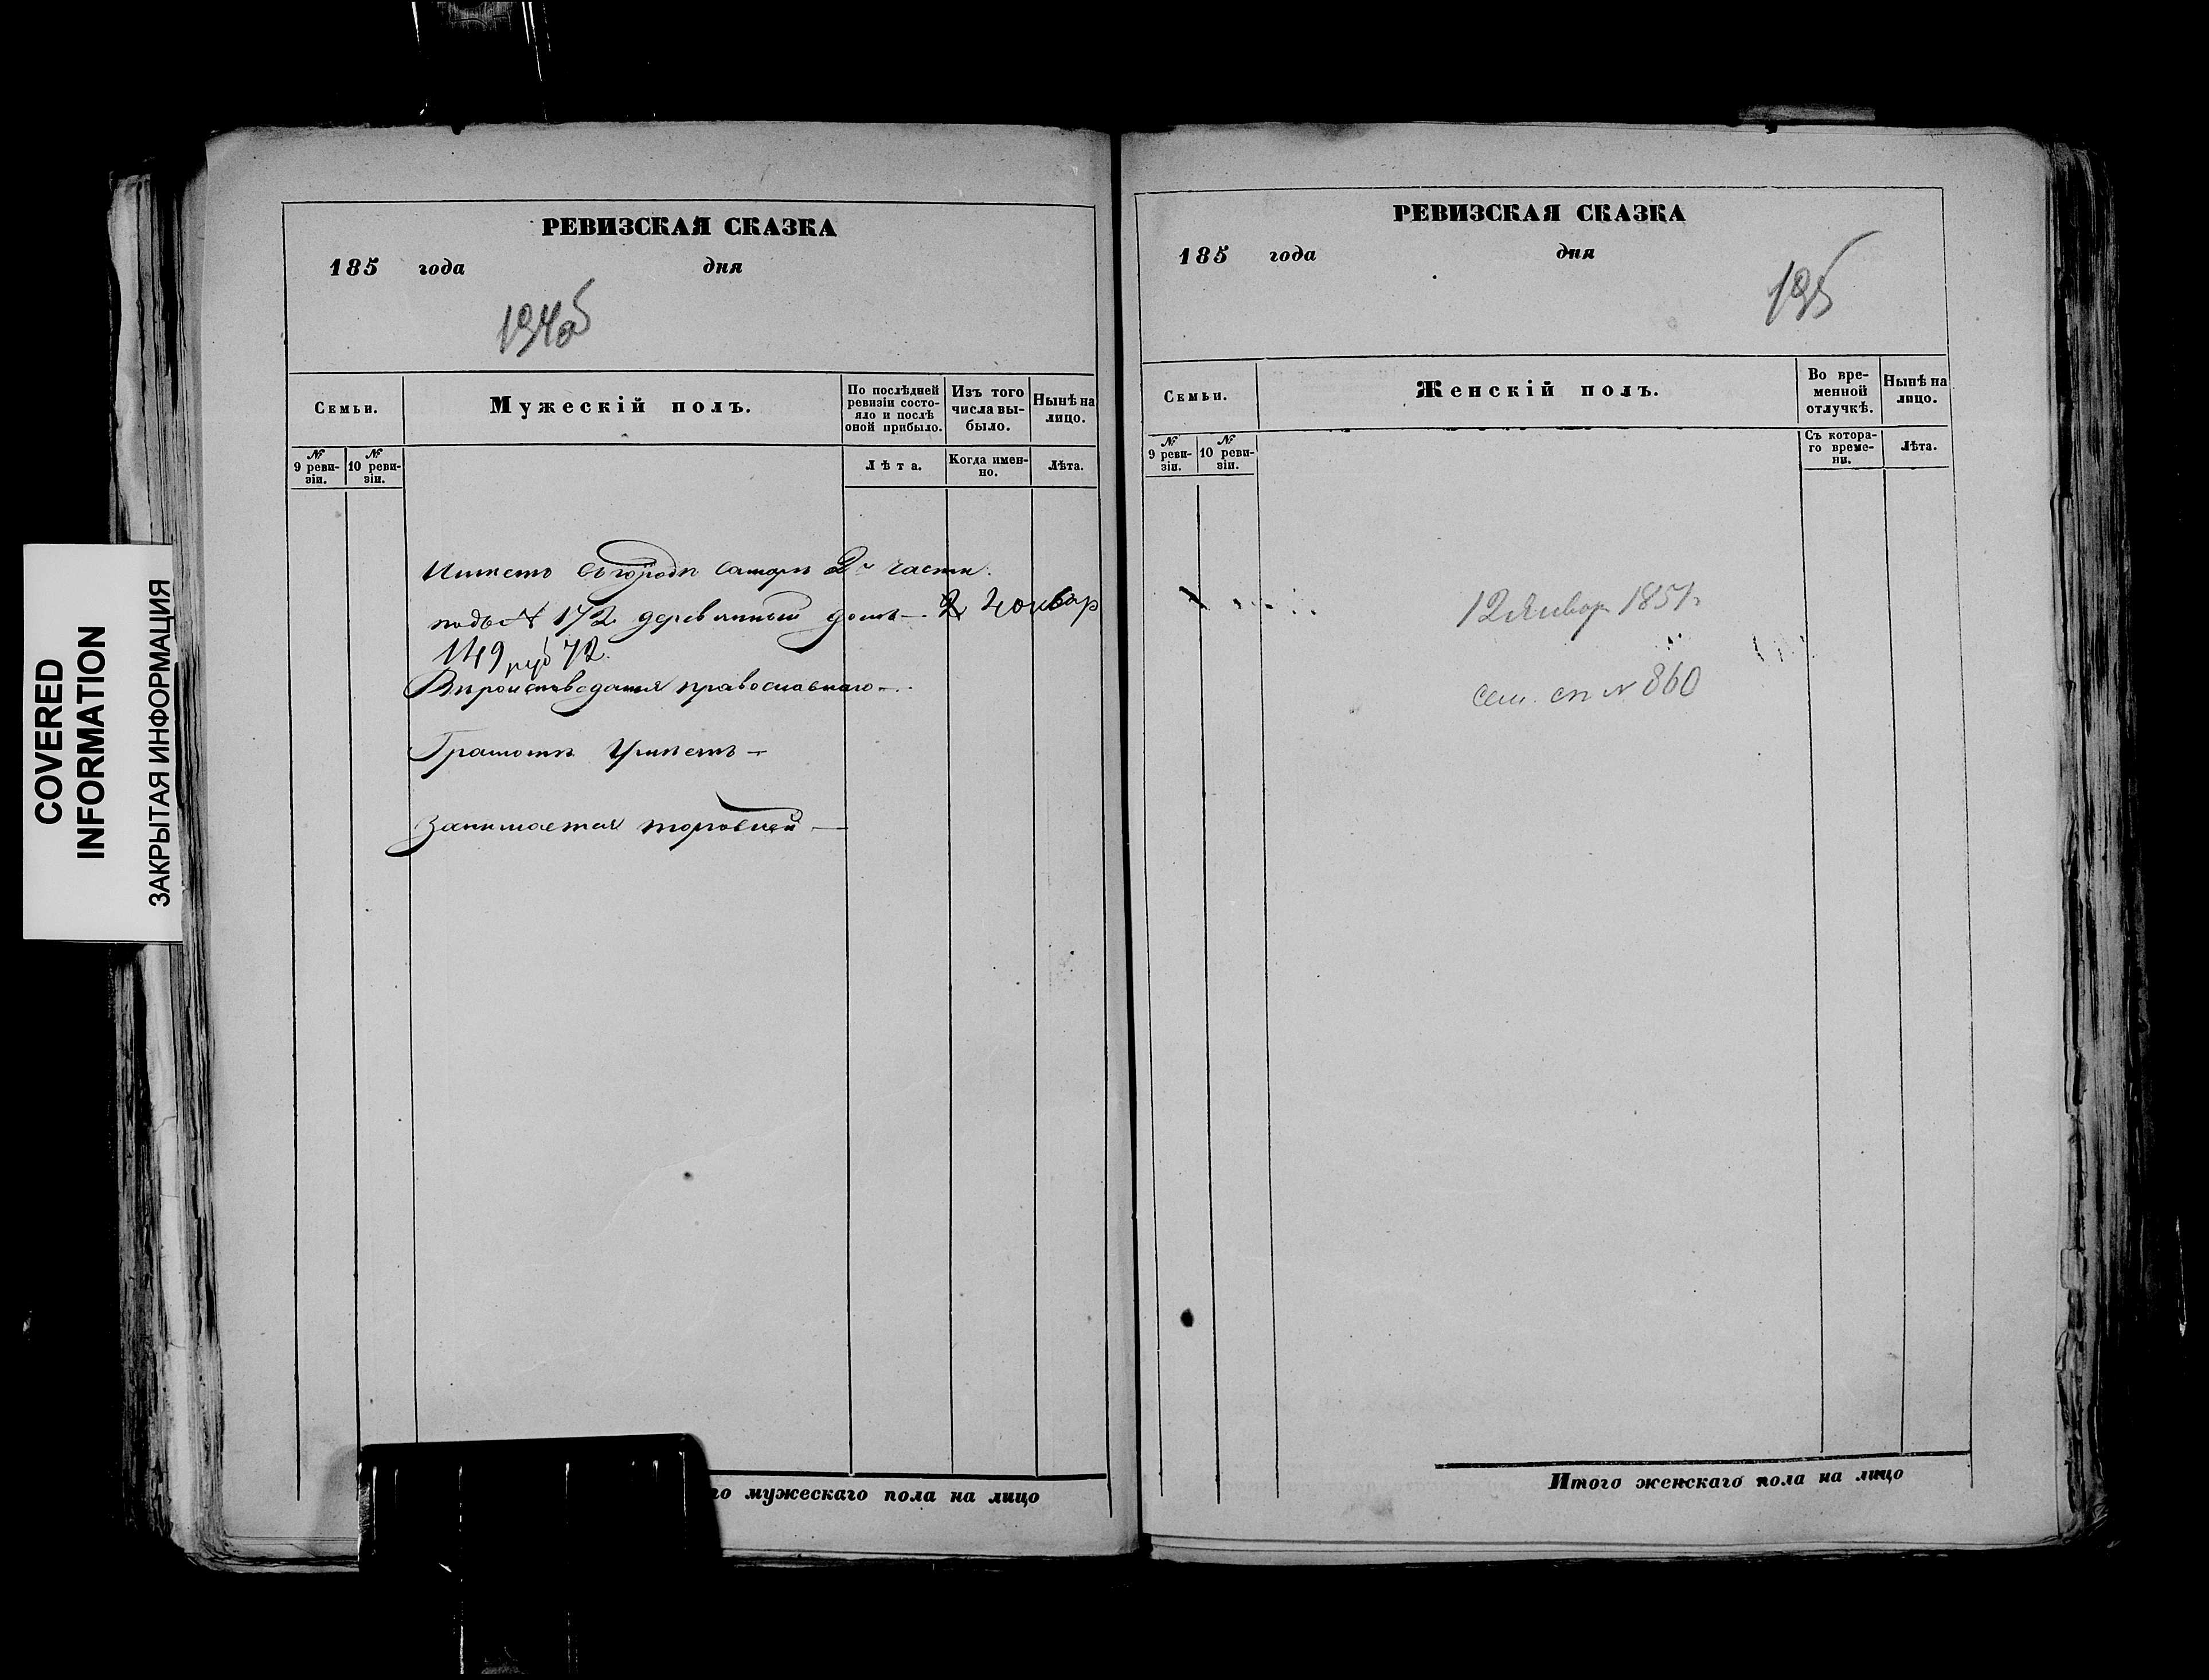 COVERED
INFORMATION
ЗАКРЫТАЯ ИНФОРМАЦИЯ
РЕВИЗСКАЯ СКАЗКА
185 года дня
194об
Семьи.
Мужескій полъ.
По послѣдней ревизіи состояло и послѣ оной прибыло.
Изъ того числа выбыло.
Нынѣ на лицо.
№ 9 ревизіи.
№ 10 ревизіи.
Лѣта.
Когда именно.
Лѣта.
Имѣетъ въ городѣ Самарѣ 2й части
подъ № 172 деревянный домъ —
149 руб 72
Вѣроисповеданія православнаго —
Грамотѣ Умѣетъ —
Занимается торговлей —
го мужескаго пола на лицо
РЕВИЗСКАЯ СКАЗКА
185 года дня
195
Семьи.
Женскій полъ.
Во временной отлучкѣ.
Нынѣ на лицо.
№ 9 ревизіи.
№ 10 ревизіи.
Съ котораго времени.
Лѣта.
12 Январ 1851
сем. сп № 860
Итого женскаго пола на лицо